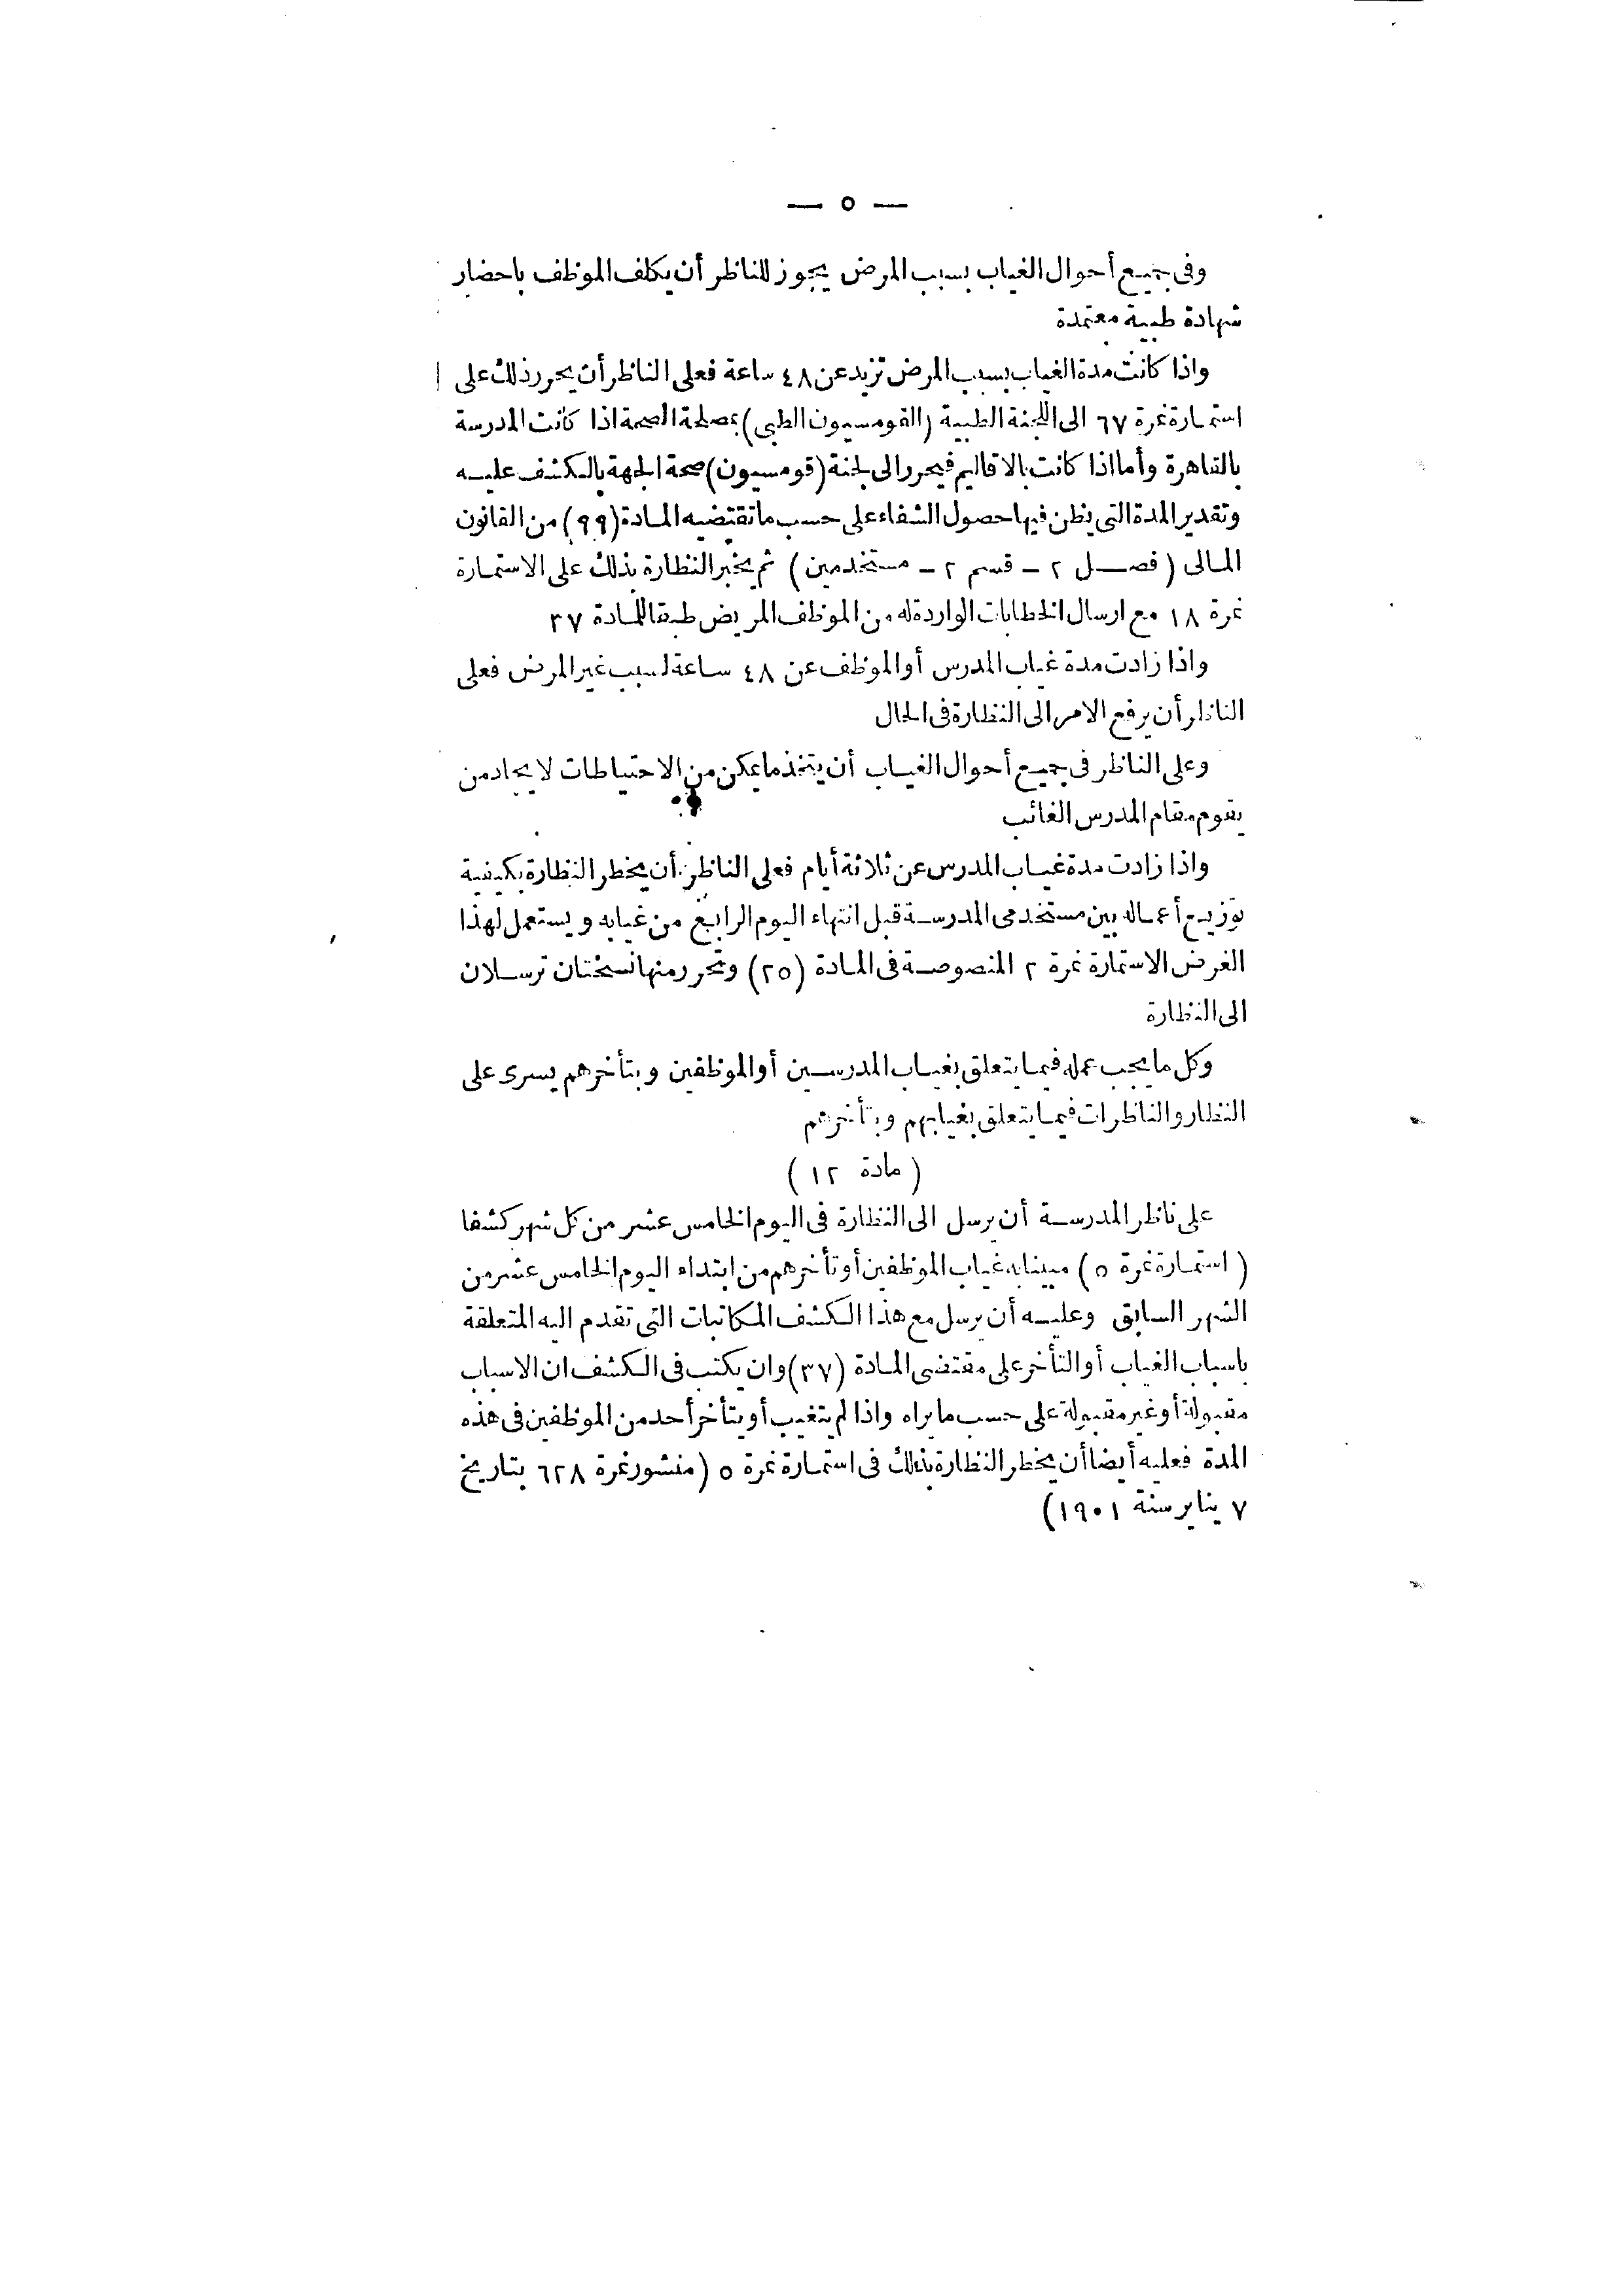 — ٥ —
وفى جميع أحوال الغياب بسبب المرض يجوز للناظر أن يكلف الموظف باحضار
شهادة طبية معتمدة
واذا كانت مدة الغياب بسبب المرض تزيد عن ٤٨ ساعة فعلى الناظر أن يحرر ذلك على
استمارة نمرة ٦٧ الى اللجنة الطبية (القومسيون الطبى) بمصلحة الصحة اذا كانت المدرسة
بالقاهرة وأما اذا كانت بالاقاليم فيحرر الى لجنة (قومسيون) صحة الجهة بالكشف عليه
وتقدير المدة التى يظن فيها حصول الشفاء على حسب ما تقتضيه المادة (٩٩) من القانون
المالى (فصل ٢ - قسم ٢ - مستخدمين) ثم يخبر النظارة بذلك على الاستمارة
نمرة ١٨ مع ارسال الخطابات الواردة له من الموظف المريض طبقا للمادة ٣٧
واذا زادت مدة غياب المدرس أو الموظف عن ٤٨ ساعة لسبب غير المرض فعلى
الناظر أن يرفع الامر الى النظارة فى الحال
وعلى الناظر فى جميع أحوال الغياب أن يتخذ ما يمكن من الاحتياطات لايجاد من
يقوم مقام المدرس الغائب
واذا زادت مدة غياب المدرس عن ثلاثة أيام فعلى الناظر أن يخطر النظارة بكيفية
توزيع أعماله بين مستخدمى المدرسة قبل انتهاء اليوم الرابع من غيابه ويستعمل لهذا
الغرض الاستمارة نمرة ٢ المنصوصة فى المادة (٢٥) وتحرر منها نسختان ترسلان
الى النظارة
وكل ما يجب عمله فيما يتعلق بغياب المدرسين أو الموظفين وبتأخرهم يسرى على
النظار والناظرات فيما يتعلق بغيابهم وبتأخرهم
(مادة ١٢)
على ناظر المدرسة أن يرسل الى النظارة فى اليوم الخامس عشر من كل شهر كشفا
(استمارة نمرة ٥) مبينا به غياب الموظفين أو تأخرهم من ابتداء اليوم الخامس عشر من
الشهر السابق وعليه أن يرسل مع هذا الكشف المكاتبات التى تقدم اليه المتعلقة
باسباب الغياب أو التأخر على مقتضى المادة (٣٧) وان يكتب فى الكشف ان الاسباب
مقبولة أو غير مقبولة على حسب ما يراه واذا لم يتغيب أو يتأخر أحد من الموظفين فى هذه
المدة فعليه أيضا أن يخطر النظارة بذلك فى استمارة نمرة ٥ (منشور نمرة ٦٢٨ بتاريخ
٧ يناير سنة ١٩٠١)